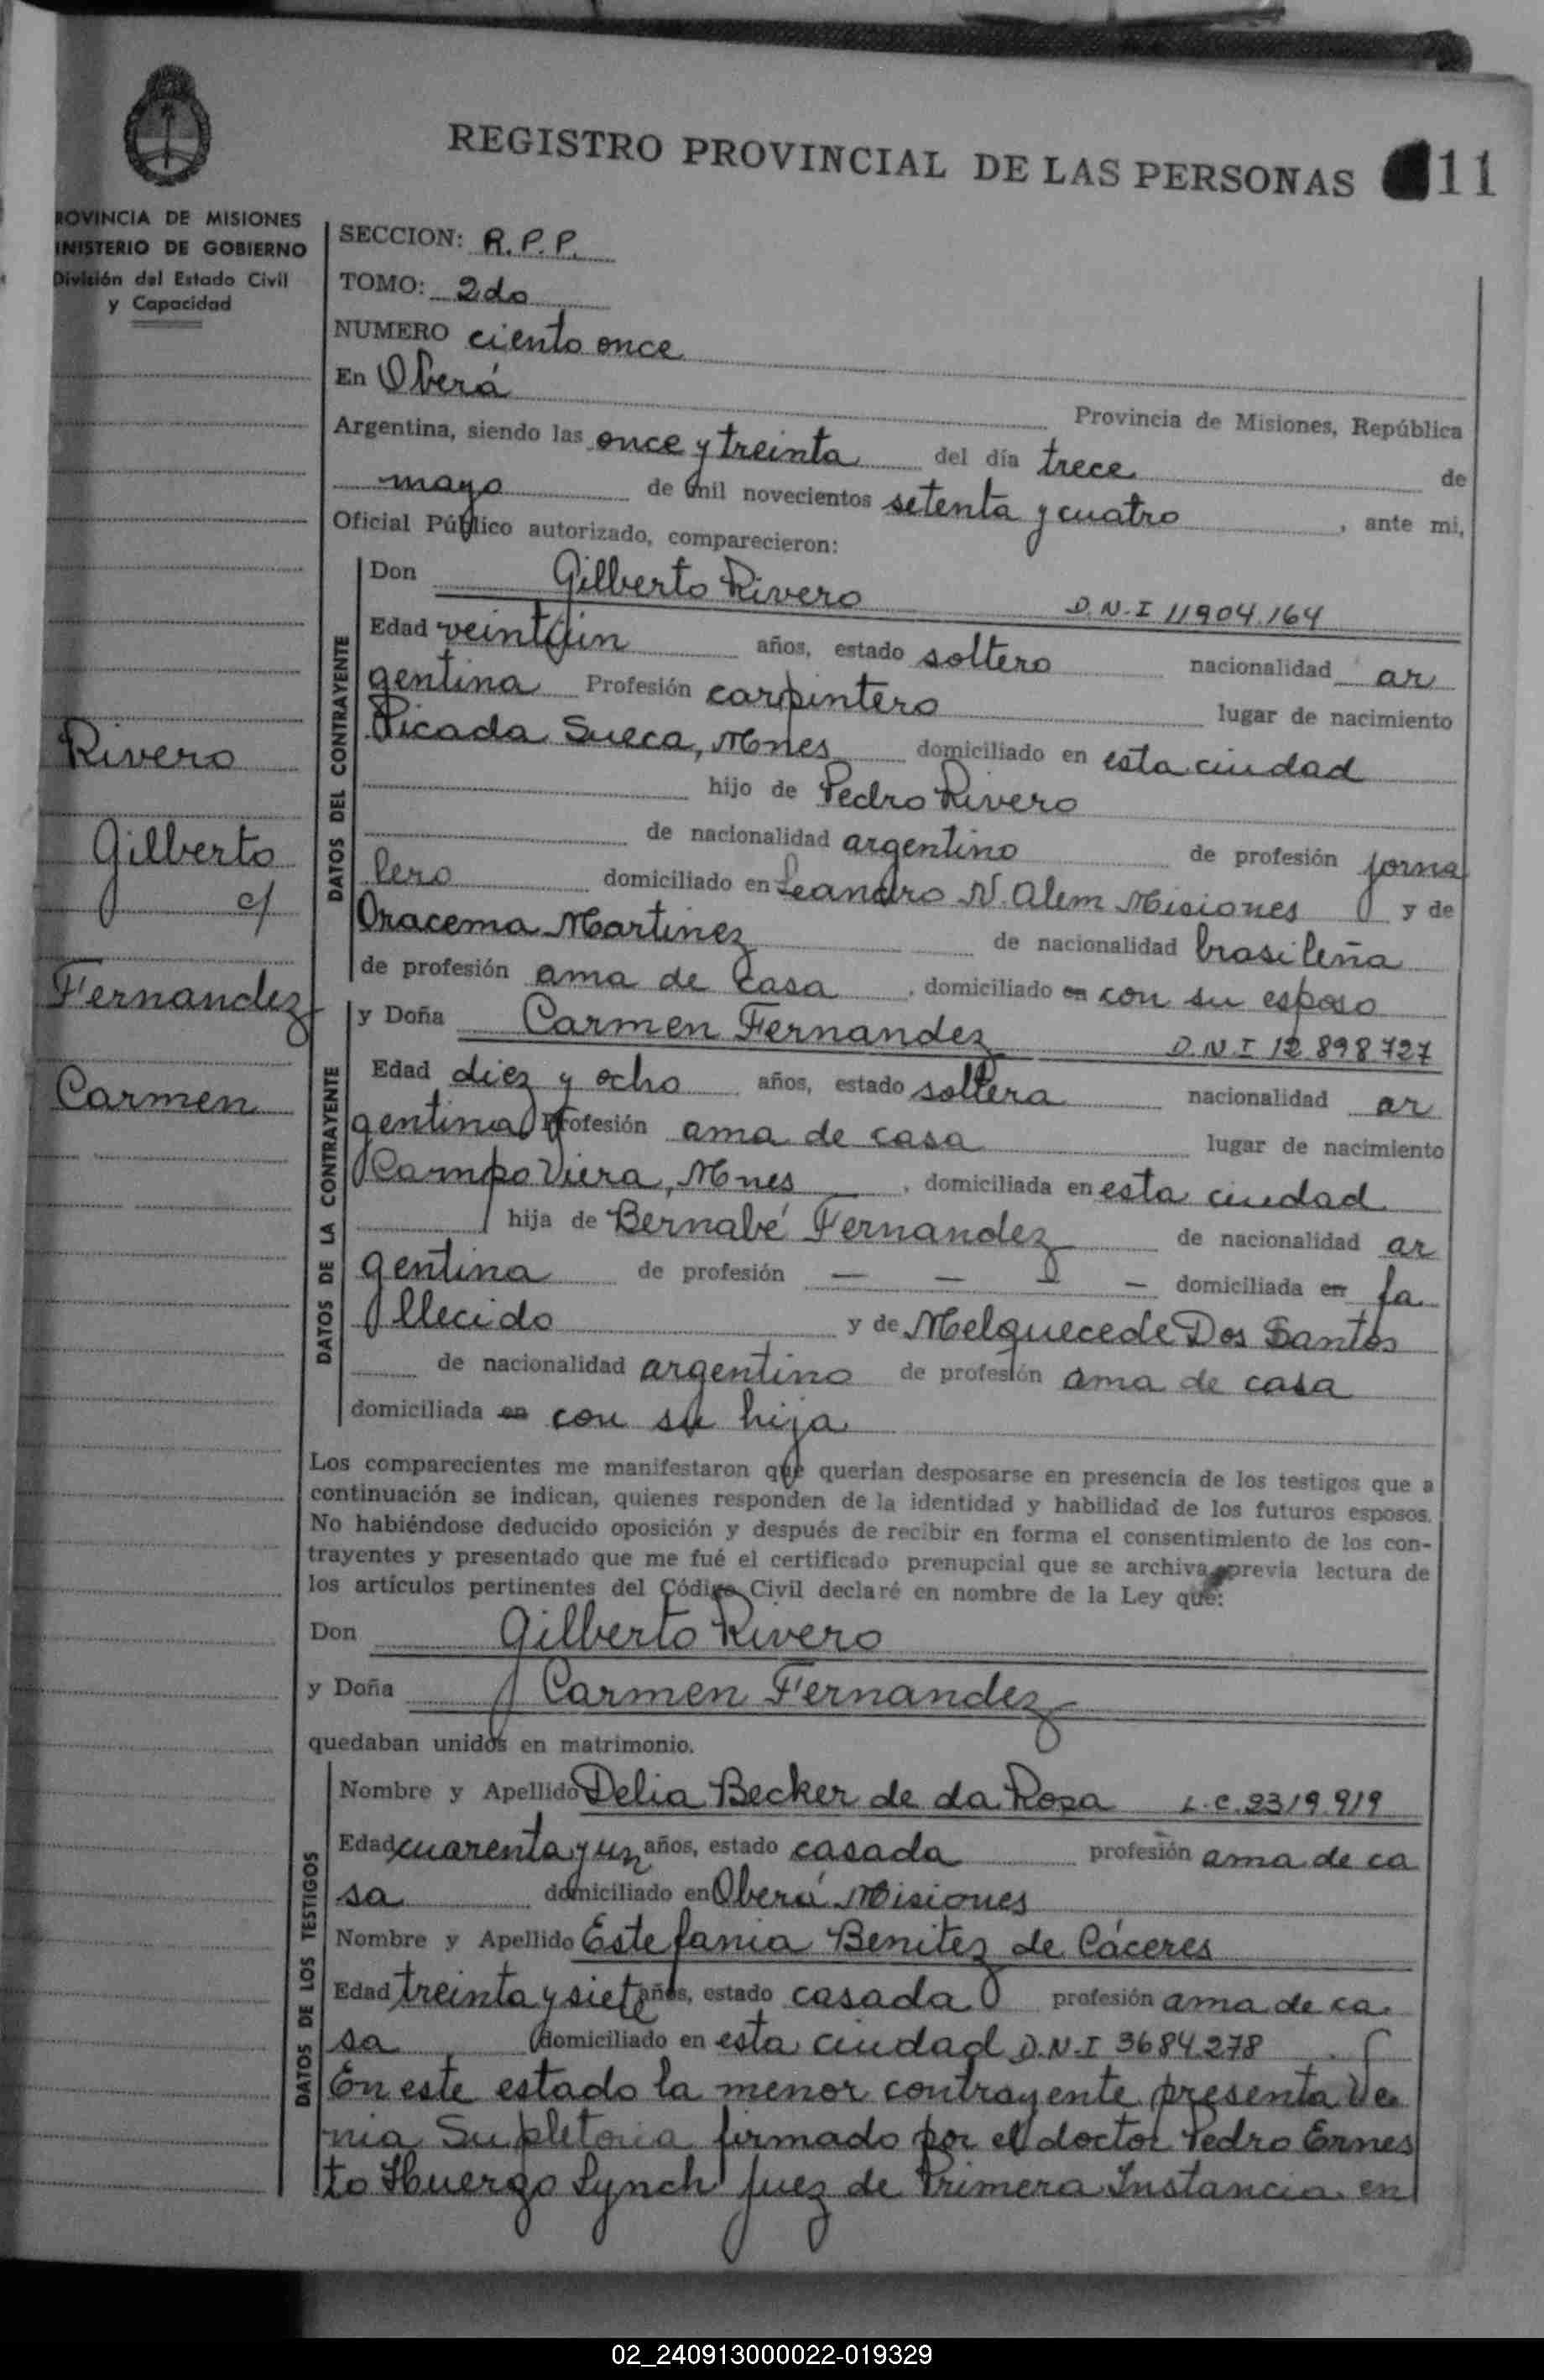 REGISTRO PROVINCIAL DE LAS PERSONAS 11
ROVINCIA DE MISIONES
INISTERIO DE GOBIERNO
División del Estado Civil
y Capacidad
SECCION: R.P.P.
TOMO: 2do
NUMERO ciento once
En Oberá Provincia de Misiones, República
Argentina, siendo las once y treinta del día trece de
mayo de mil novecientos setenta y cuatro, ante mi,
Oficial Público autorizado, comparecieron:
DATOS DEL CONTRAYENTE
Don Gilberto Rivero D.N.I 11904.164
Edad veintiún años, estado soltero nacionalidad ar
gentina Profesión carpintero lugar de nacimiento
Picada Sueca, Mnes domiciliado en esta ciudad
hijo de Pedro Rivero
de nacionalidad argentino de profesión jorna
lero domiciliado en Leandro N. Alem Misiones y de
Oracema Martinez de nacionalidad brasileña
de profesión ama de casa, domiciliado en con su esposo
Rivero
Gilberto
c/
Fernandez
Carmen
DATOS DE LA CONTRAYENTE
y Doña Carmen Fernandez D.N.I 12 898 727
Edad diez y ocho años, estado soltera nacionalidad ar
gentina Profesión ama de casa lugar de nacimiento
Campo Viera, Mnes, domiciliada en esta ciudad
hija de Bernabé Fernandez de nacionalidad ar
gentina de profesión — — — — domiciliada en fa
llecido y de Melquecede Dos Santos
de nacionalidad argentino de profesión ama de casa
domiciliada en con su hija
Los comparecientes me manifestaron que querían desposarse en presencia de los testigos que a
continuación se indican, quienes responden de la identidad y habilidad de los futuros esposos.
No habiéndose deducido oposición y después de recibir en forma el consentimiento de los con-
trayentes y presentado que me fué el certificado prenupcial que se archiva previa lectura de
los artículos pertinentes del Código Civil declaré en nombre de la Ley que:
Don Gilberto Rivero
y Doña Carmen Fernandez
quedaban unidos en matrimonio.
DATOS DE LOS TESTIGOS
Nombre y Apellido Delia Becker de da Rosa L.C. 2319.919
Edad cuarenta y un años, estado casada profesión ama de ca
sa domiciliado en Oberá Misiones
Nombre y Apellido Estefania Benitez de Cáceres
Edad treinta y siete años, estado casada profesión ama de ca
sa domiciliado en esta ciudad D.N.I 3684.278
En este estado la menor contrayente presenta Ve
nia Supletoria firmado por el doctor Pedro Ernes
to Huergo Lynch juez de Primera Instancia en
02_240913000022-019329